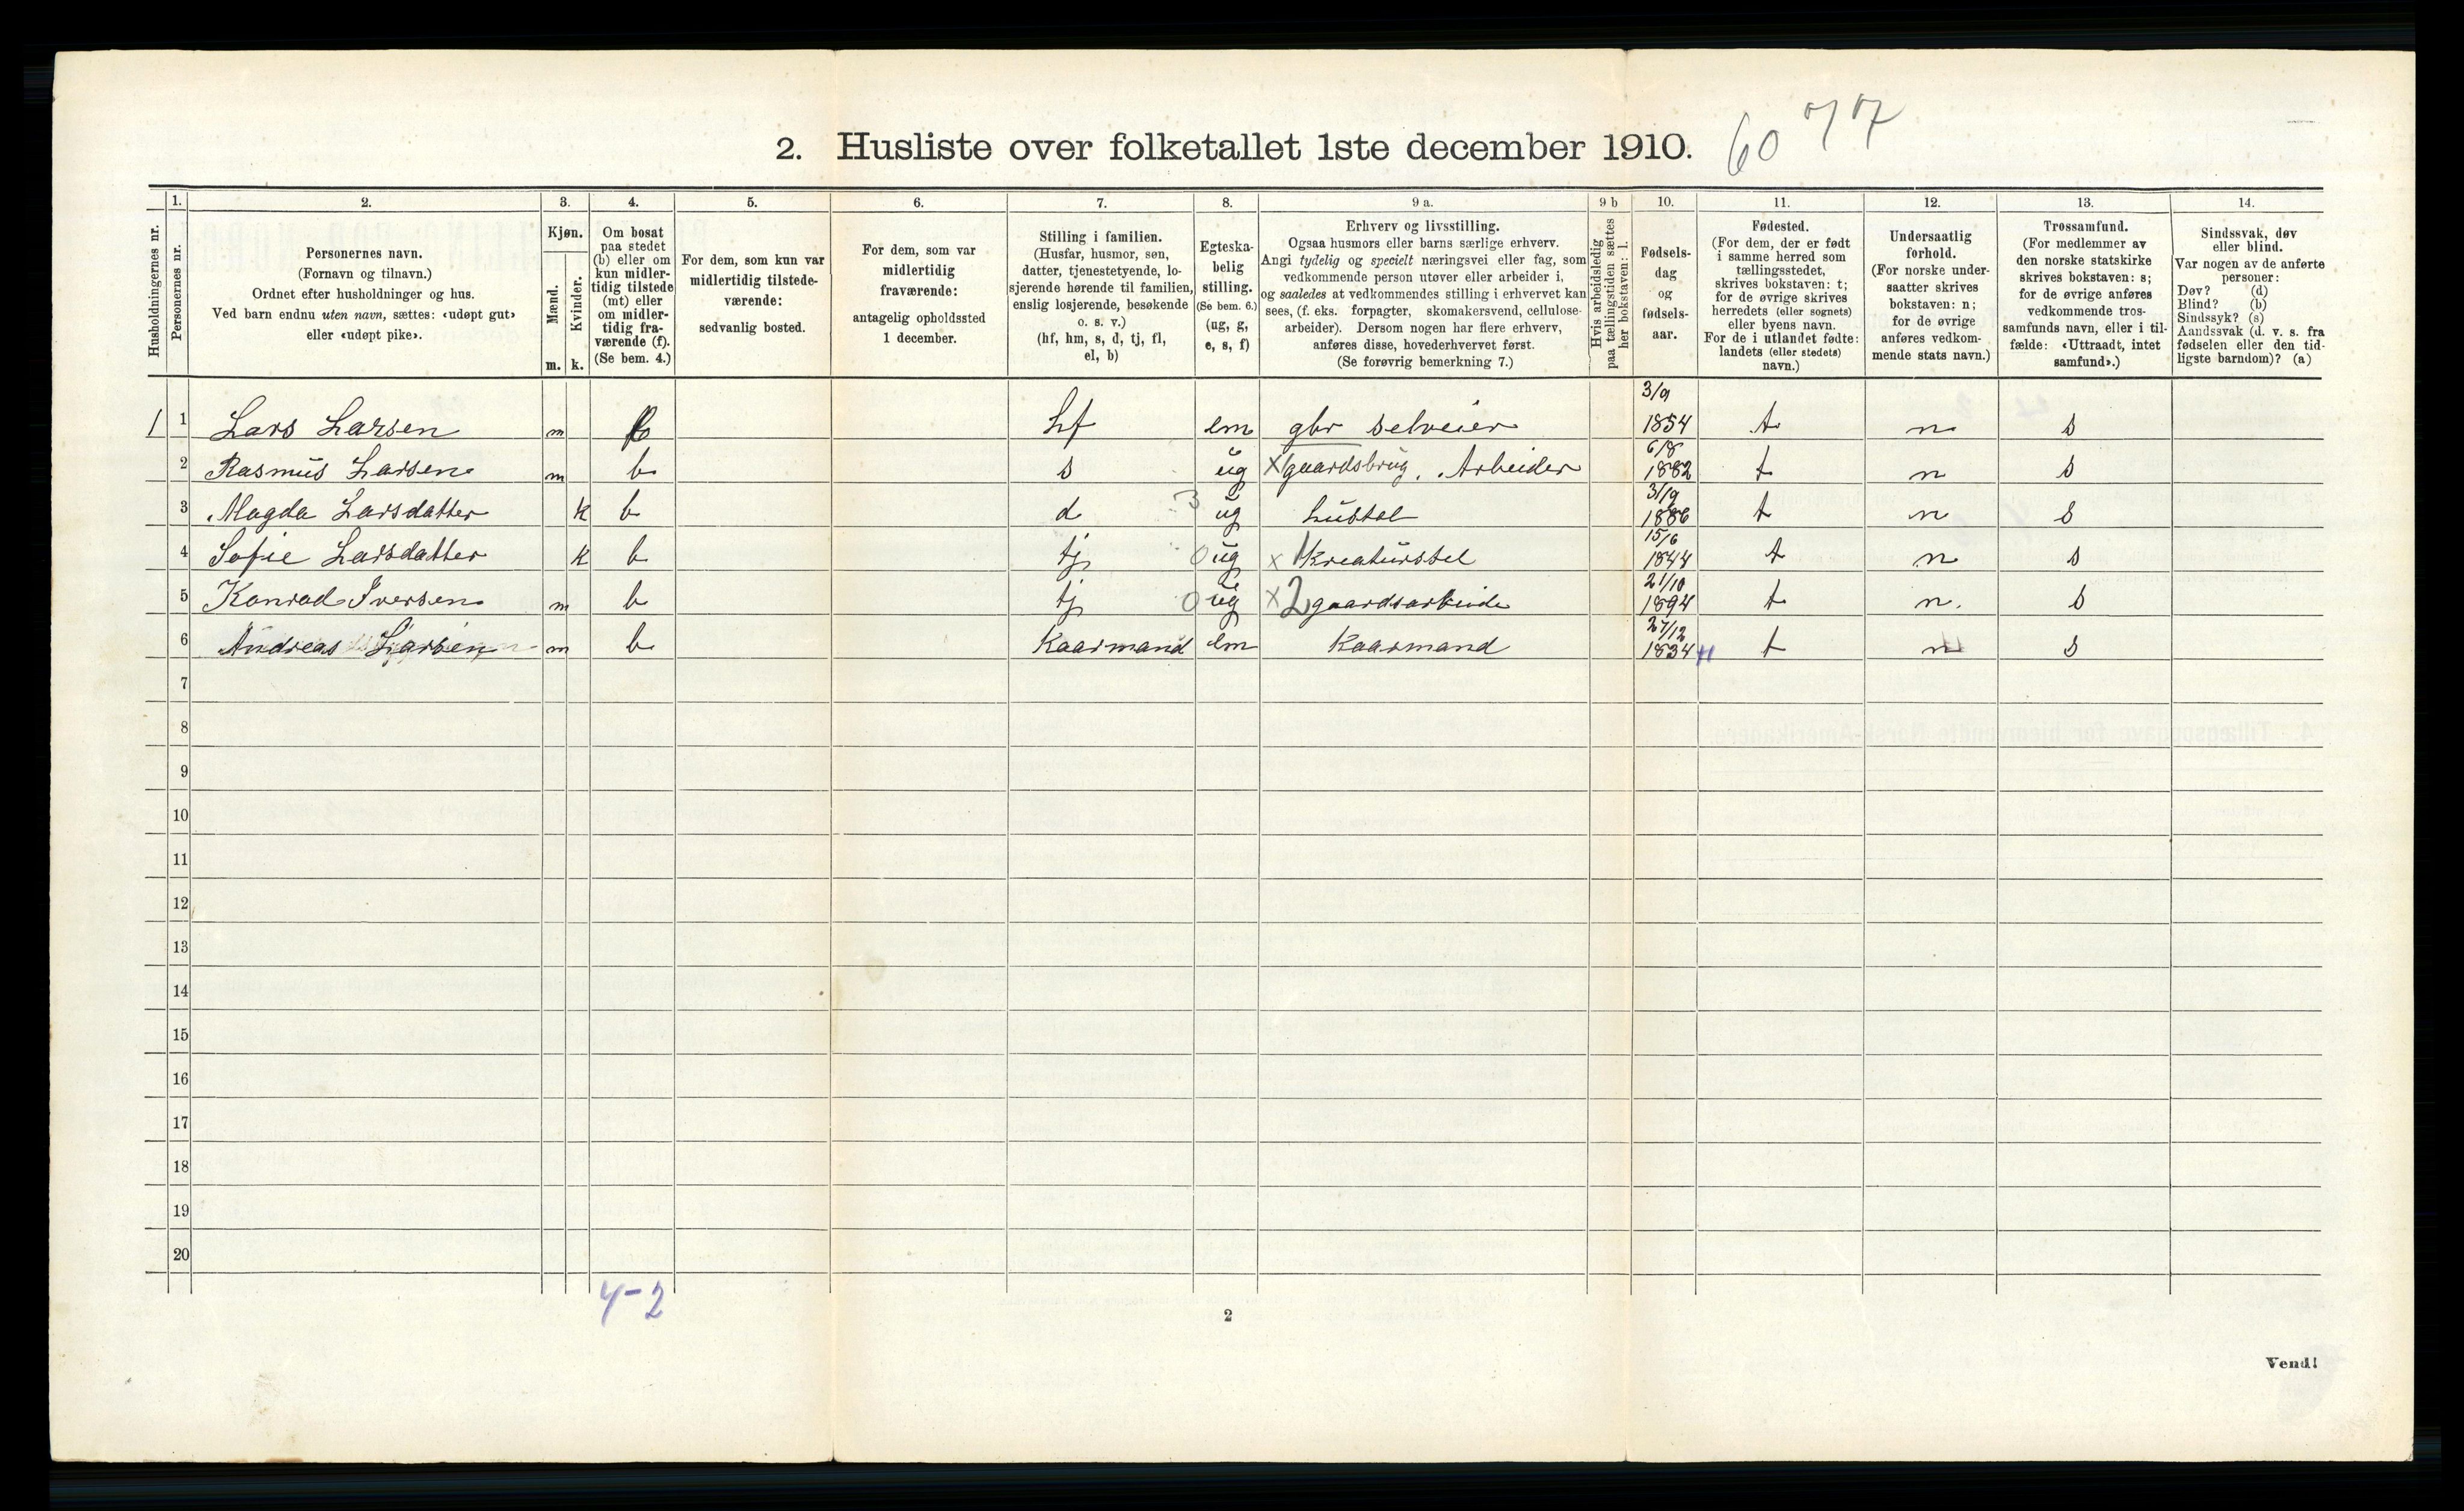 2. Husliste over folketallet 1ste december 1910. 60 77
1. 2. 3. 4. 5. 6. 7. 8. 9 a. 9 b 10. 11. 12. 13. 14.
Husholdningernes nr.
Personernes nr.
Personernes navn.
(Fornavn og tilnavn.)
Ordnet efter husholdninger og hus.
Ved barn endnu uten navn, sættes: «udøpt gut»
eller «udøpt pike».
Kjøn.
Mænd.
Kvinder.
m. k.
Om bosat
paa stedet
(b) eller om
kun midler-
tidig tilstede
(mt) eller
om midler-
tidig fra-
værende (f).
(Se bem. 4.)
For dem, som kun var
midlertidig tilstede-
værende:
sedvanlig bosted.
For dem, som var
midlertidig
fraværende:
antagelig opholdssted
1 december.
Stilling i familien.
(Husfar, husmor, søn,
datter, tjenestetyende, lo-
sjerende hørende til familien,
enslig losjerende, besøkende
o. s. v.)
(hf, hm, s, d, tj, fl,
el, b)
Egteska-
belig
stilling.
(Se bem. 6.)
(ug, g,
e, s, f)
Erhverv og livsstilling.
Ogsaa husmors eller barns særlige erhverv.
Angi tydelig og specielt næringsvei eller fag, som
vedkommende person utøver eller arbeider i,
og saaledes at vedkommendes stilling i erhvervet kan
sees, (f. eks. forpagter, skomakersvend, cellulose-
arbeider). Dersom nogen har flere erhverv,
anføres disse, hovederhvervet først.
(Se forøvrig bemerkning 7.)
Hvis arbeidsledig
paa tællingstiden sættes
her bokstaven: l.
Fødsels-
dag
og
fødsels-
aar.
Fødested.
(For dem, der er født
i samme herred som
tællingsstedet,
skrives bokstaven: t;
for de øvrige skrives
herredets (eller sognets)
eller byens navn.
For de i utlandet fødte:
landets (eller stedets)
navn.)
Undersaatlig
forhold.
(For norske under-
saatter skrives
bokstaven: n;
for de øvrige
anføres vedkom-
mende stats navn.)
Trossamfund.
(For medlemmer av
den norske statskirke
skrives bokstaven: s;
for de øvrige anføres
vedkommende tros-
samfunds navn, eller i til-
fælde: «Uttraadt, intet
samfund».)
Sindssvak, døv
eller blind.
Var nogen av de anførte
personer:
Døv? (d)
Blind? (b)
Sindssyk? (s)
Aandssvak (d. v. s. fra
fødselen eller den tid-
ligste barndom)? (a)
1 1 Lars Larsen m b hf em gbr selveier 3/9 1854 t n s
2 Rasmus Larsen m b s ug x gaardsbrug. Arbeider 6/8 1882 t n s
3 Magda Larsdatter k b d 3 ug hustel 3/9 1886 t n s
4 Sofie Larsdatter k b tj 0 ug x 1 Kreaturstel 15/6 1844 t n s
5 Konrad Iversen m b tj 0 ug x 2 gaardsarbeide 21/10 1894 t n. s
6 Andreas Larsen m b Kaarmand em Kaarmand 27/12 1834 t n s
7
8
9
10
11
12
13
14
15
16
17
18
19
20
4-2
2
Vend!